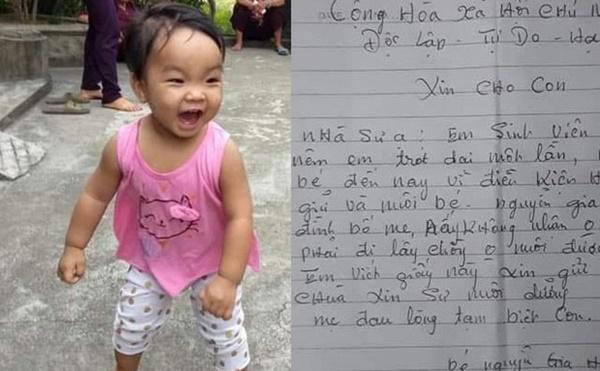 Cộng Hòa Xã Hội Chủ N
Độc Lập - Tự Do - Hạ
Xin Cho Con
Nhà Sư ạ: Em Sinh Viên
nên em trót dại một lần,
bé đến nay vì điều kiện
giữ và nuôi bé. nguyễn gia
đình bố mẹ, Không nhân
phải đi lấy chồng o nuôi được
Em viết giấy này xin gửi
Chùa xin Sư nuôi dưỡng
mẹ đau lòng tạm biệt con.
bé nguyễn Gia H